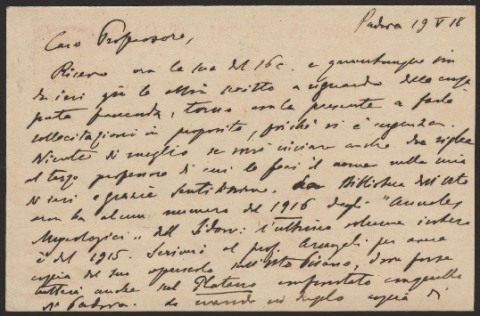 Padova 19 V 18
Caro Professore,
Ricevo ora la sua del 16 c. e quantunque sin
da ieri già le abbia scritto a riguardo della
faccenda, torno con la presente a farle
sollecitazioni in proposito, poichè vi è urgenza.
Niente di meglio se vorrà inviare anche due righe
al terzo professore di cui le feci il nome nella mia
di ieri e grazie sentitissime. La Biblioteca dell'Orto
non ha alcun numero del 1916 degli "Annales
Mycologici" del Sydow: l'ultimo volume intero
è del 1915. Scriverò al prof. Arcangeli per avere
copia del suo opuscolo sull'Orto Pisano, dove forse
tratterà anche del Platano confrontato con quello
di Padova. Le mando un duplo copia di